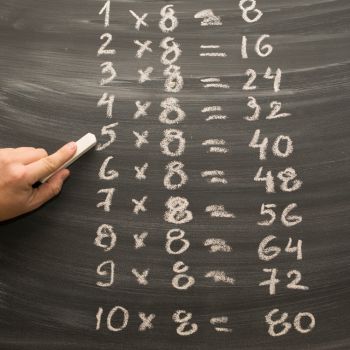 1 × 8 = 8
2 × 8 = 16
3 × 8 = 24
4 × 8 = 32
5 × 8 = 40
6 × 8 = 48
7 × 8 = 56
8 × 8 = 64
9 × 8 = 72
10 × 8 = 80